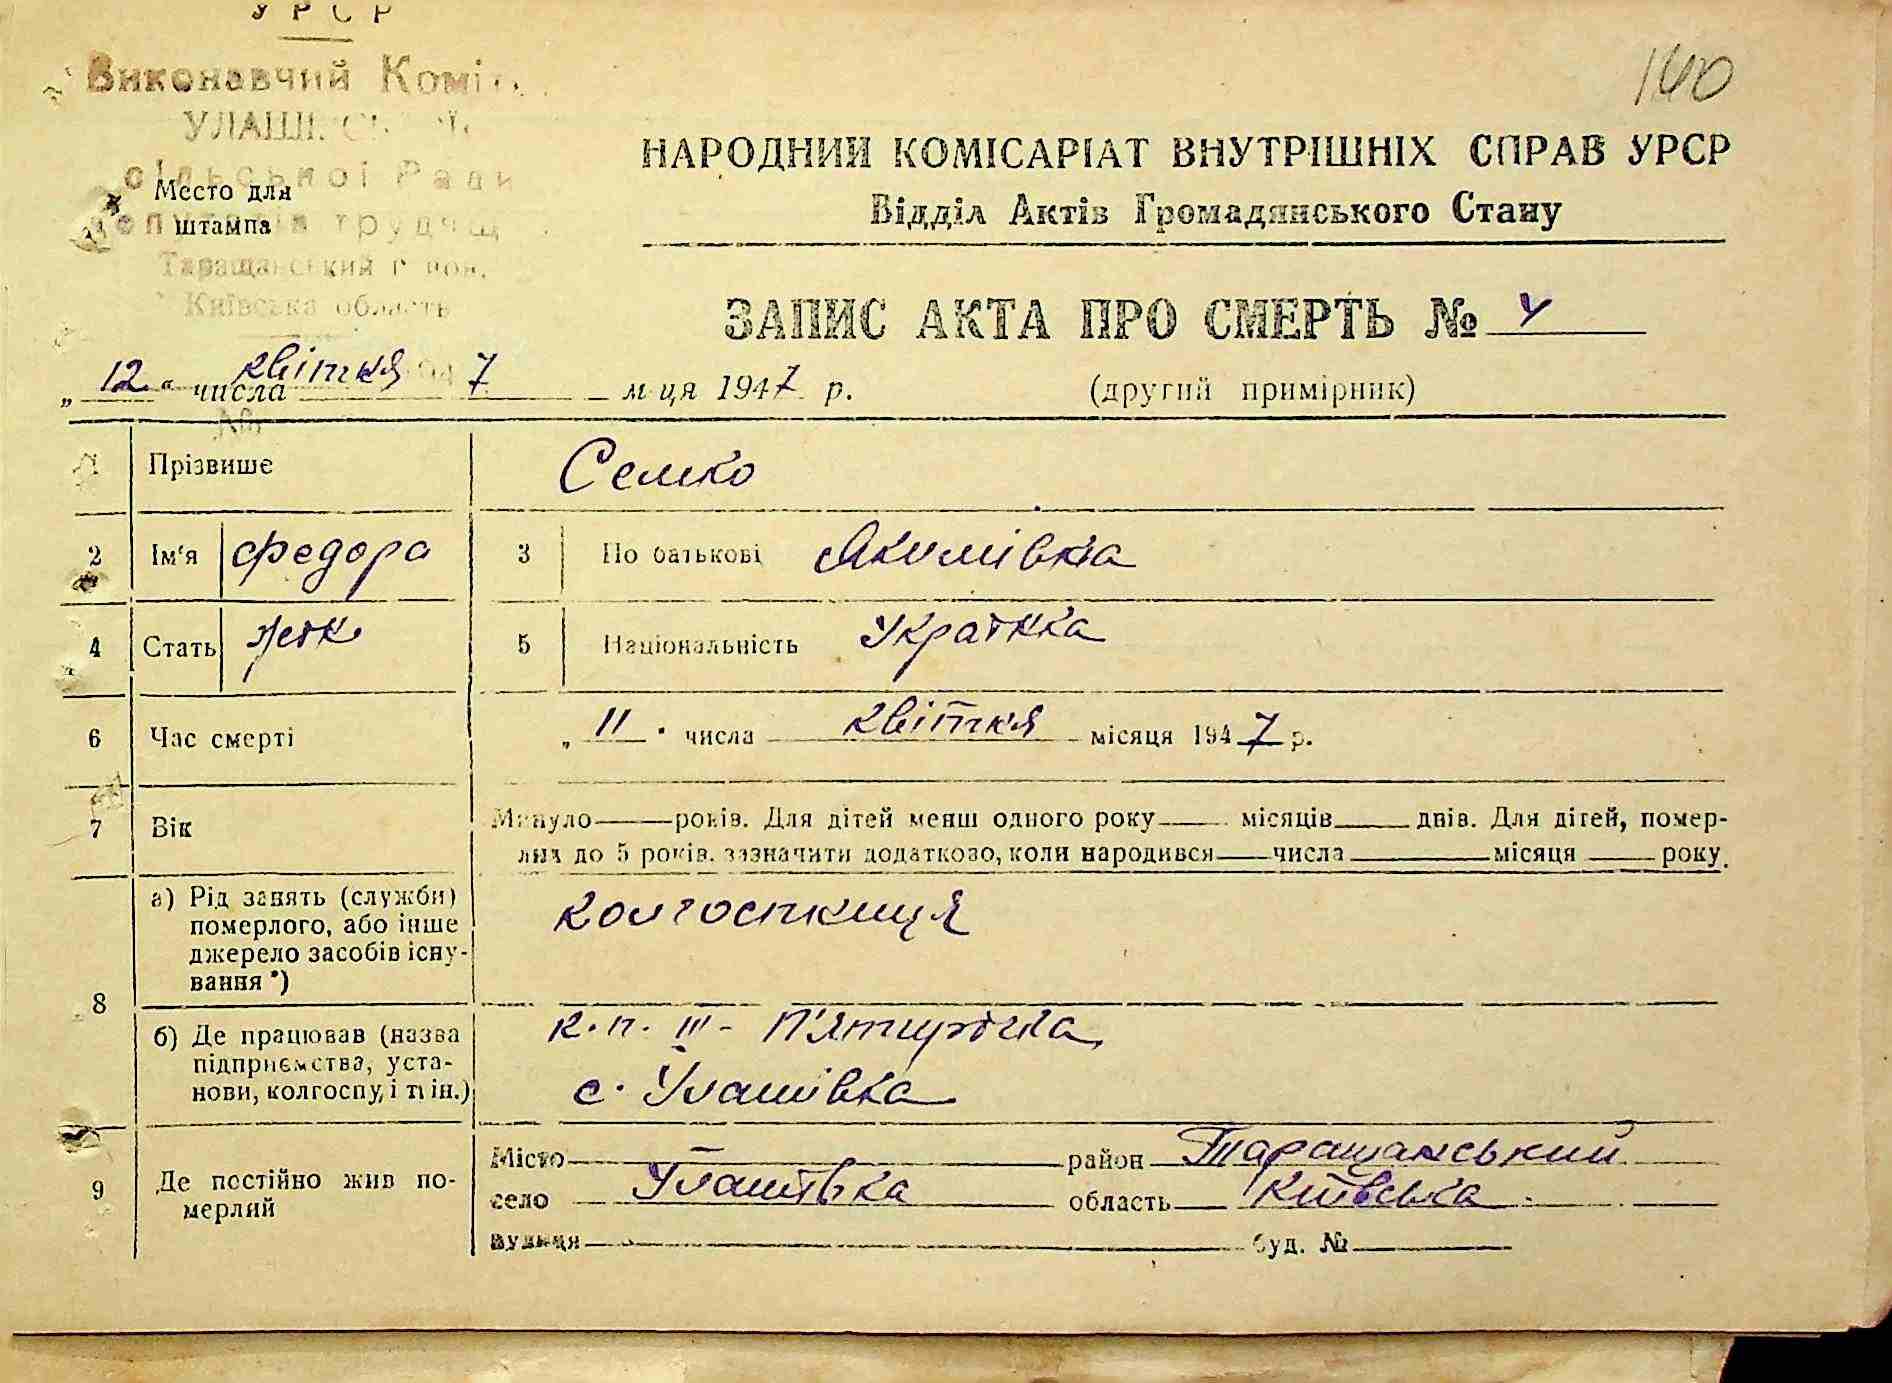 УРСР
Виконавчий Коміт
140
УЛАШІВСЬКОЇ
сільської Ради
НАРОДНИЙ КОМІСАРІАТ ВНУТРІШНІХ СПРАВ УРСР
Место для
штампа
депутатів трудящ
Відділ Актів Громадянського Стану
Таращанський район.
Київська область
ЗАПИС АКТА ПРО СМЕРТЬ № 4
„ 12 " числа квітня 7 м-ця 1947 р. (другий примірник)
1 Прізвише Семко
2 Ім'я Федора 3 По батькові Якимівна
4 Стать жін 5 Національність Українка
6 Час смерті „ 11 " числа квітня місяця 1947 р.
7 Вік Минуло — років. Для дітей менш одного року — місяців — днів. Для дітей, помер-
лих до 5 років, зазначити додатково, коли народився — числа — місяця — року.
8 а) Рід занять (служби) померлого, або інше джерело засобів існування *) колгоспниця
б) Де працював (назва підприємства, установи, колгоспу, і т. ін.) к.п. III - П'ятирічка,
с. Улашівка
9 Де постійно жив померлий Місто — район Таращанський
село Улашівка область Київська
вулиця — буд. № —